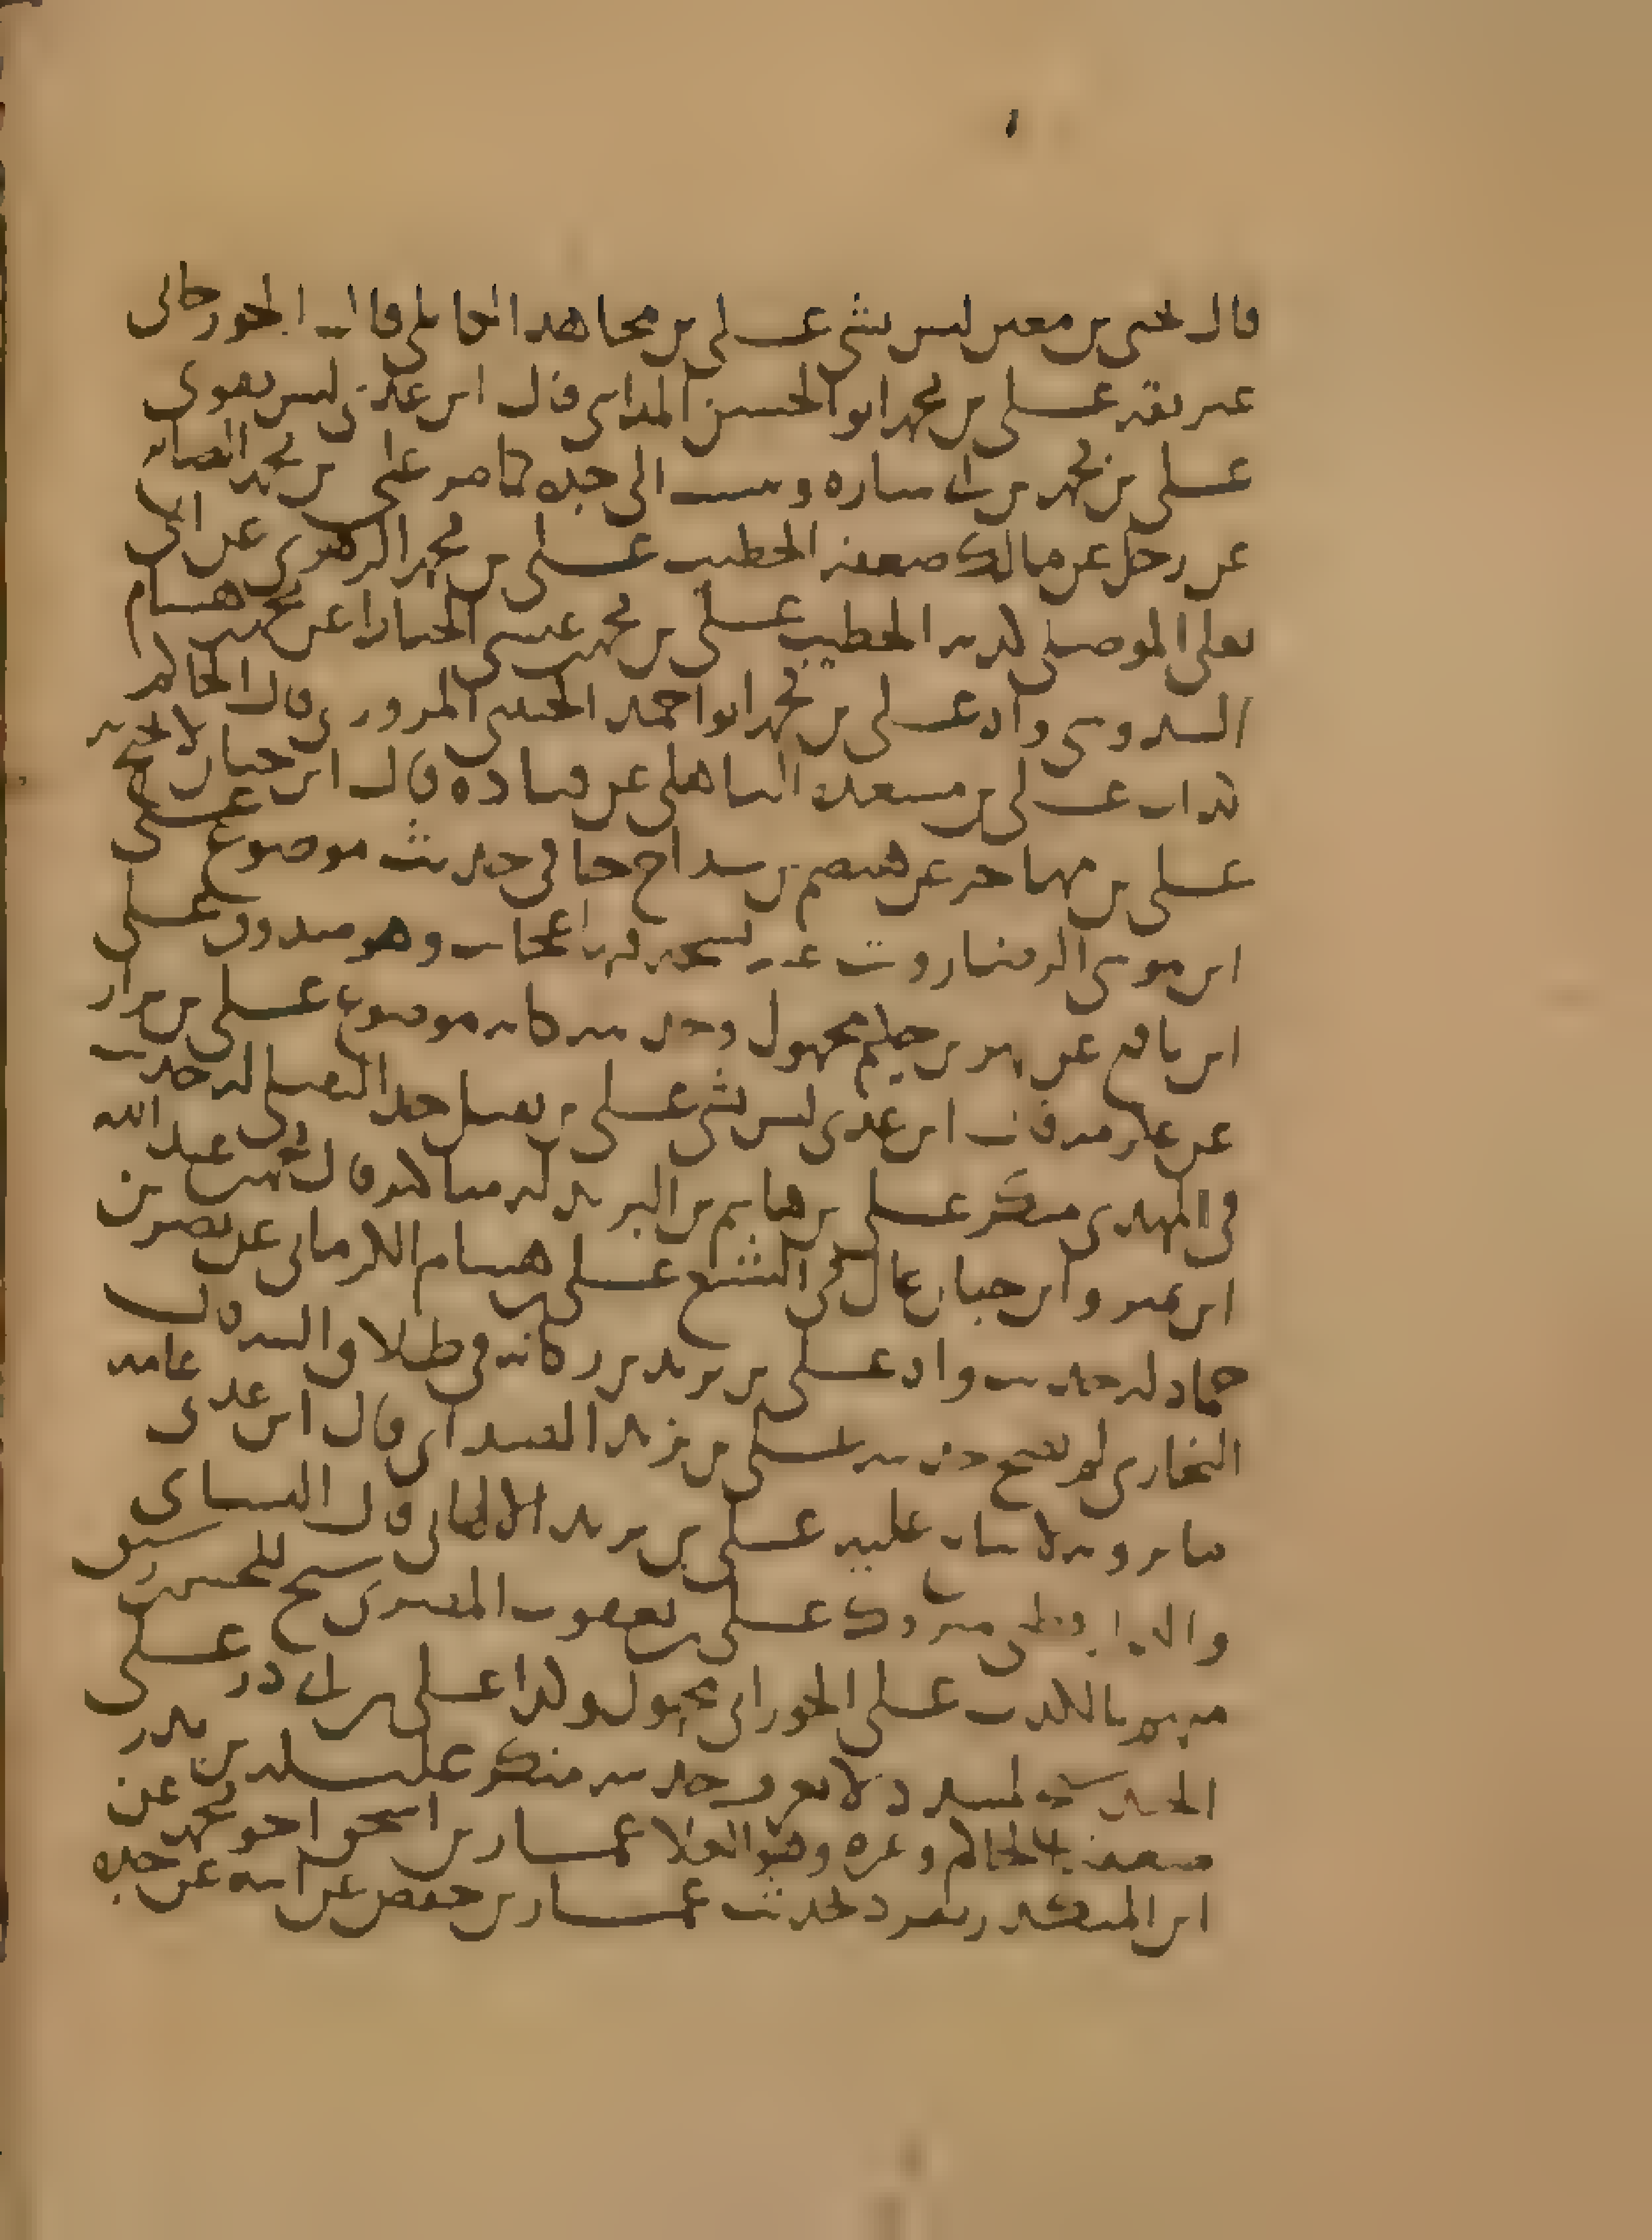 قال يحيى بن معين ليس بشي علي بن مجاهد الكابلي قال الجوزجاني
غير ثقه علي بن محمد ابو الحسن المدايني قال ابن عدي ليس بقوي
علي بن محمد بن ابي ساره ونسب الى جده كما مر علي بن محمد الصائغ
عن رجل عن مالك ضعفه الخطيب علي بن محمد الزهري عن ابي
يعلى الموصلي كذبه الخطيب علي بن محمد عيسى الخياط عن محمد هشام
السدوسي واه علي بن محمد ابو احمد الحبيبي المروزي قال الحاكم
كذاب علي بن مسعده الباهلي عن قتاده قال ابن حبان لا يحتج به
علي بن مهاجر عن هيصم بن شداخ جا في حديث موضوع علي
ابن موسى الرضا روت عنه نسخه فيها عجايب وهو صدوق علي
ابن نافع عن بهز بن حكيم مجهول وحديثه كانه موضوع علي بن نزار
عن عكرمه قال ابن عدي ليس بشي علي بن نفيل جد النفيلي له حديث
في المهدي منكر علي بن هاشم بن البريد له مناكير قال محمد بن عبد الله
ابن نمير وابن حبان غال في التشيع علي بن هشام الكرماني عن نصر بن
حماد له حديث واه علي بن يزيد بن ركانه في طلاق البته قال
البخاري لم يصح حديثه علي بن يزيد الصدائي قال ابن عدي عامه
ما يرويه لا يتابع عليه علي بن يزيد الالهاني قال النسائي
والدارقطني متروك علي بن يعقوب المصري شيخ للحسن بن رشيق
متهم بالكذب علي الحوراني مجهول وكذا علي بن ابي
المسدد لا يعرف وحديثه منكر عليله بن بدر
ضعفه الحاكم وغيره وهو العلا عمار بن اسحق اخو محمد عن
ابن المنكدر تفرد بحديث عمار بن حفص عن ابيه عن جده